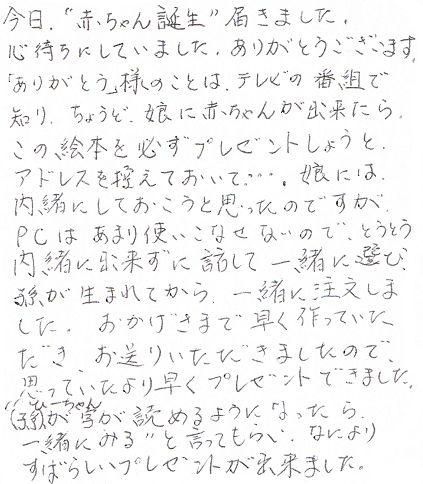 今日、"赤ちゃん誕生"届きました。
心待ちにしていました。ありがとうございます。
「ありがとう」様のことは、テレビの番組で
知り、ちょうど、娘に赤ちゃんが出来たら、
この絵本を必ずプレゼントしようと、
アドレスを控えておいて…。娘には、
内緒にしておこうと思ったのですが、
PCはあまり使いこなせないので、とうとう
内緒に出来ずに話して一緒に選び、
孫が生まれてから、一緒に注文しま
した。おかげさまで早く作っていた
だき、お送りいただきましたので、
思っていたより早くプレゼントできました。
"ひーちゃん
(孫)が字が読めるようになったら、
一緒にみる"と言ってもらい、なにより
すばらしいプレゼントが出来ました。